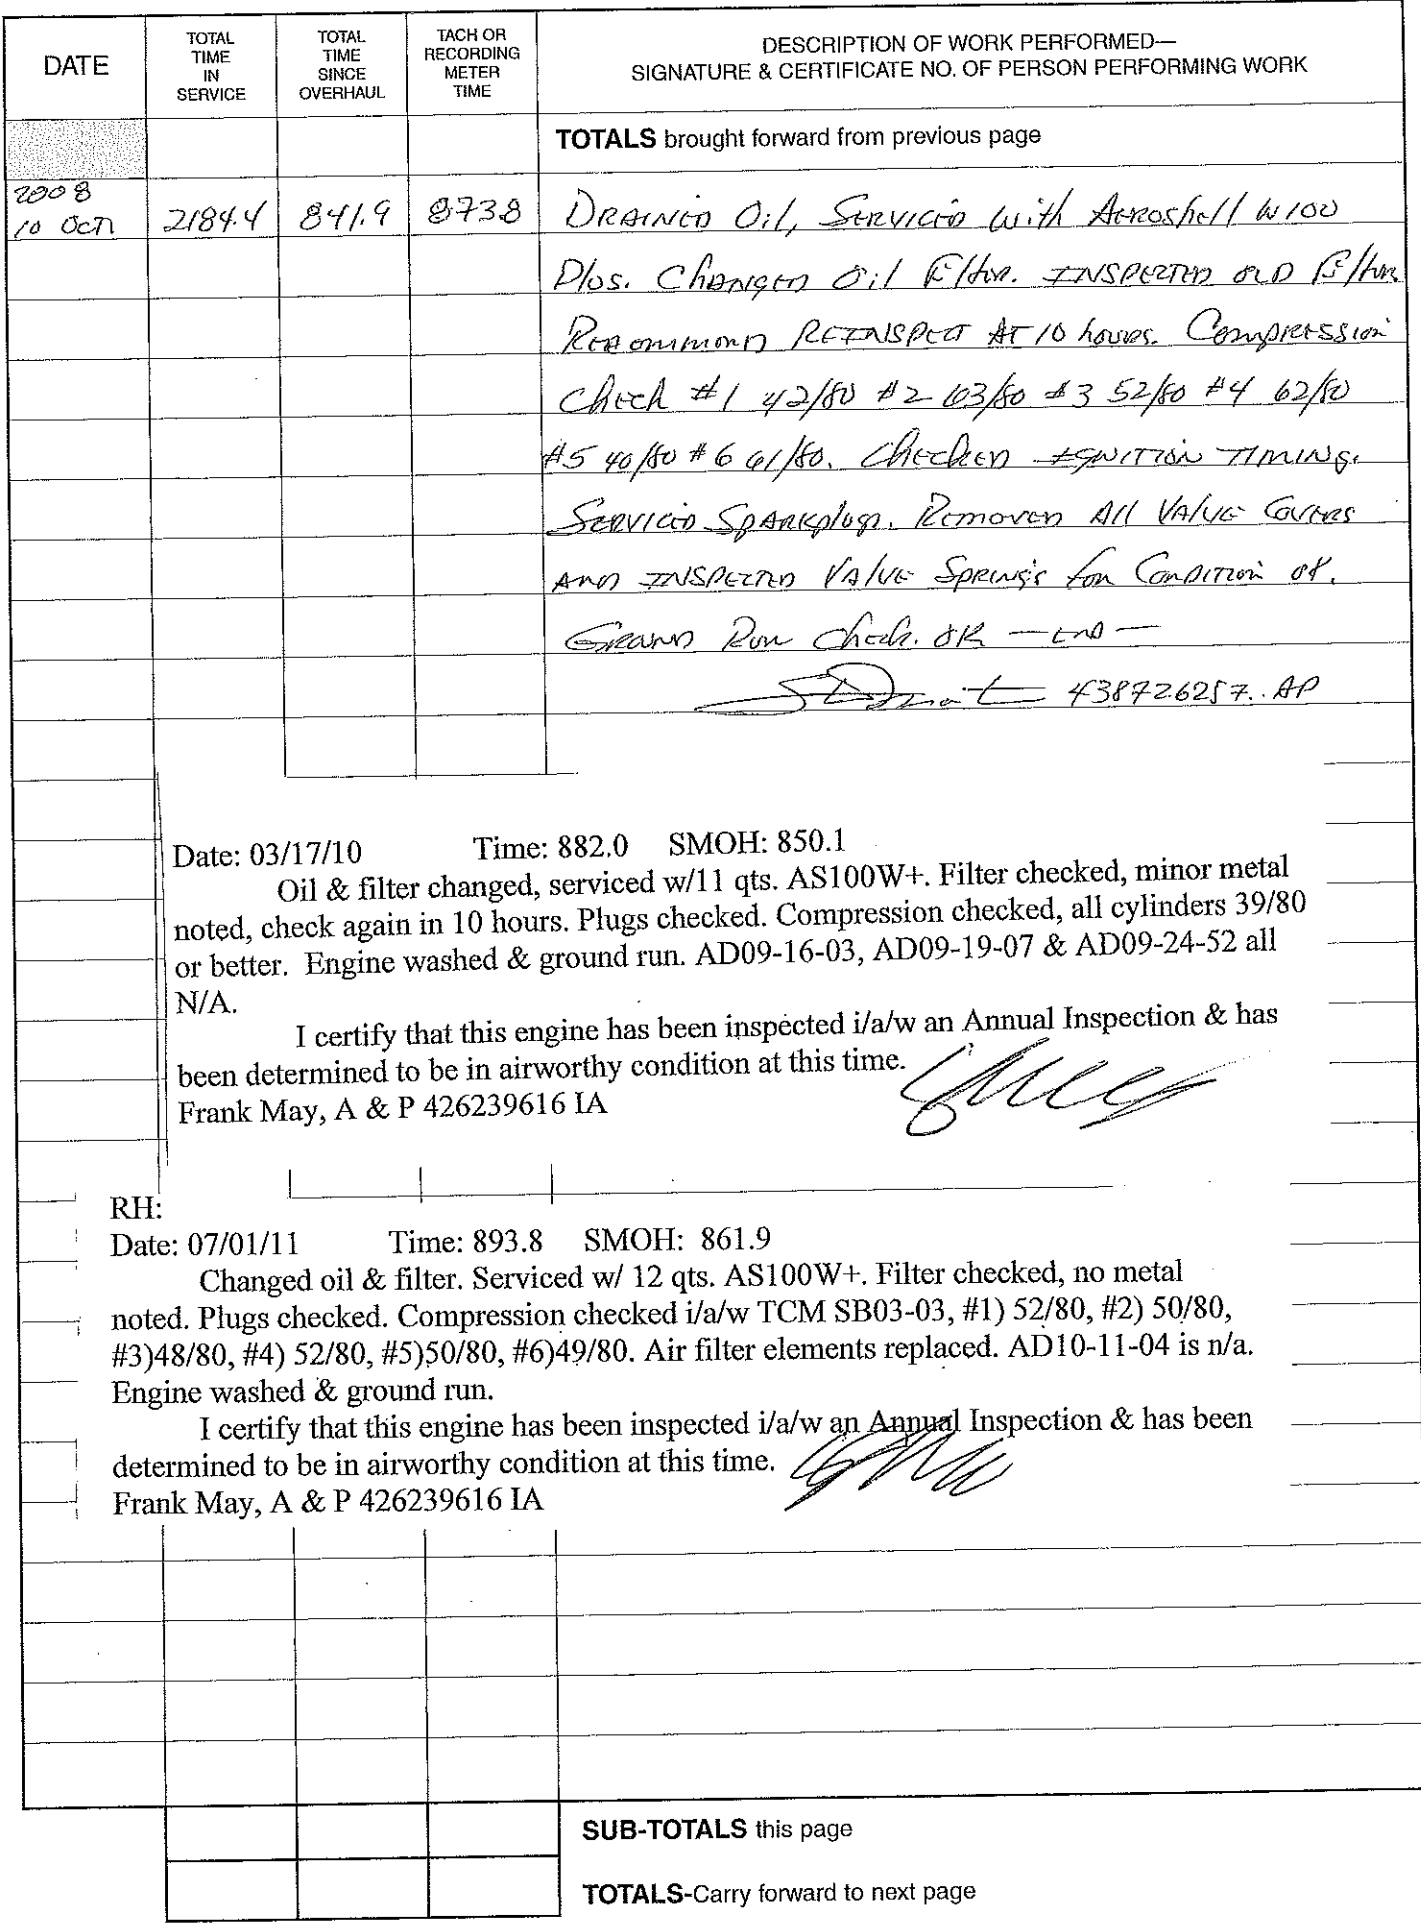 DATE TOTAL TIME IN SERVICE TOTAL TIME SINCE OVERHAUL TACH OR RECORDING METER TIME DESCRIPTION OF WORK PERFORMED— SIGNATURE & CERTIFICATE NO. OF PERSON PERFORMING WORK
TOTALS brought forward from previous page
2008
10 Oct 2184.4 841.9 873.8 Drained Oil, Serviced with Aeroshell W100
Plus. Changed Oil Filter. INSPECTED OLD Filter
Recommend REINSPECT AT 10 hours. Compression
Check #1 42/80 #2 63/80 #3 52/80 #4 62/80
#5 40/80 #6 61/80. Checked IGNITION TIMING.
Serviced Sparkplugs. Removed All Valve Covers
AND INSPECTED VAlVE Springs for Condition ok.
Ground Run Check. OK — End —
438726257.. AP
Date: 03/17/10 Time: 882.0 SMOH: 850.1
Oil & filter changed, serviced w/11 qts. AS100W+. Filter checked, minor metal
noted, check again in 10 hours. Plugs checked. Compression checked, all cylinders 39/80
or better. Engine washed & ground run. AD09-16-03, AD09-19-07 & AD09-24-52 all
N/A.
I certify that this engine has been inspected i/a/w an Annual Inspection & has
been determined to be in airworthy condition at this time.
Frank May, A & P 426239616 IA
RH:
Date: 07/01/11 Time: 893.8 SMOH: 861.9
Changed oil & filter. Serviced w/ 12 qts. AS100W+. Filter checked, no metal
noted. Plugs checked. Compression checked i/a/w TCM SB03-03, #1) 52/80, #2) 50/80,
#3)48/80, #4) 52/80, #5)50/80, #6)49/80. Air filter elements replaced. AD10-11-04 is n/a.
Engine washed & ground run.
I certify that this engine has been inspected i/a/w an Annual Inspection & has been
determined to be in airworthy condition at this time.
Frank May, A & P 426239616 IA
SUB-TOTALS this page
TOTALS-Carry forward to next page